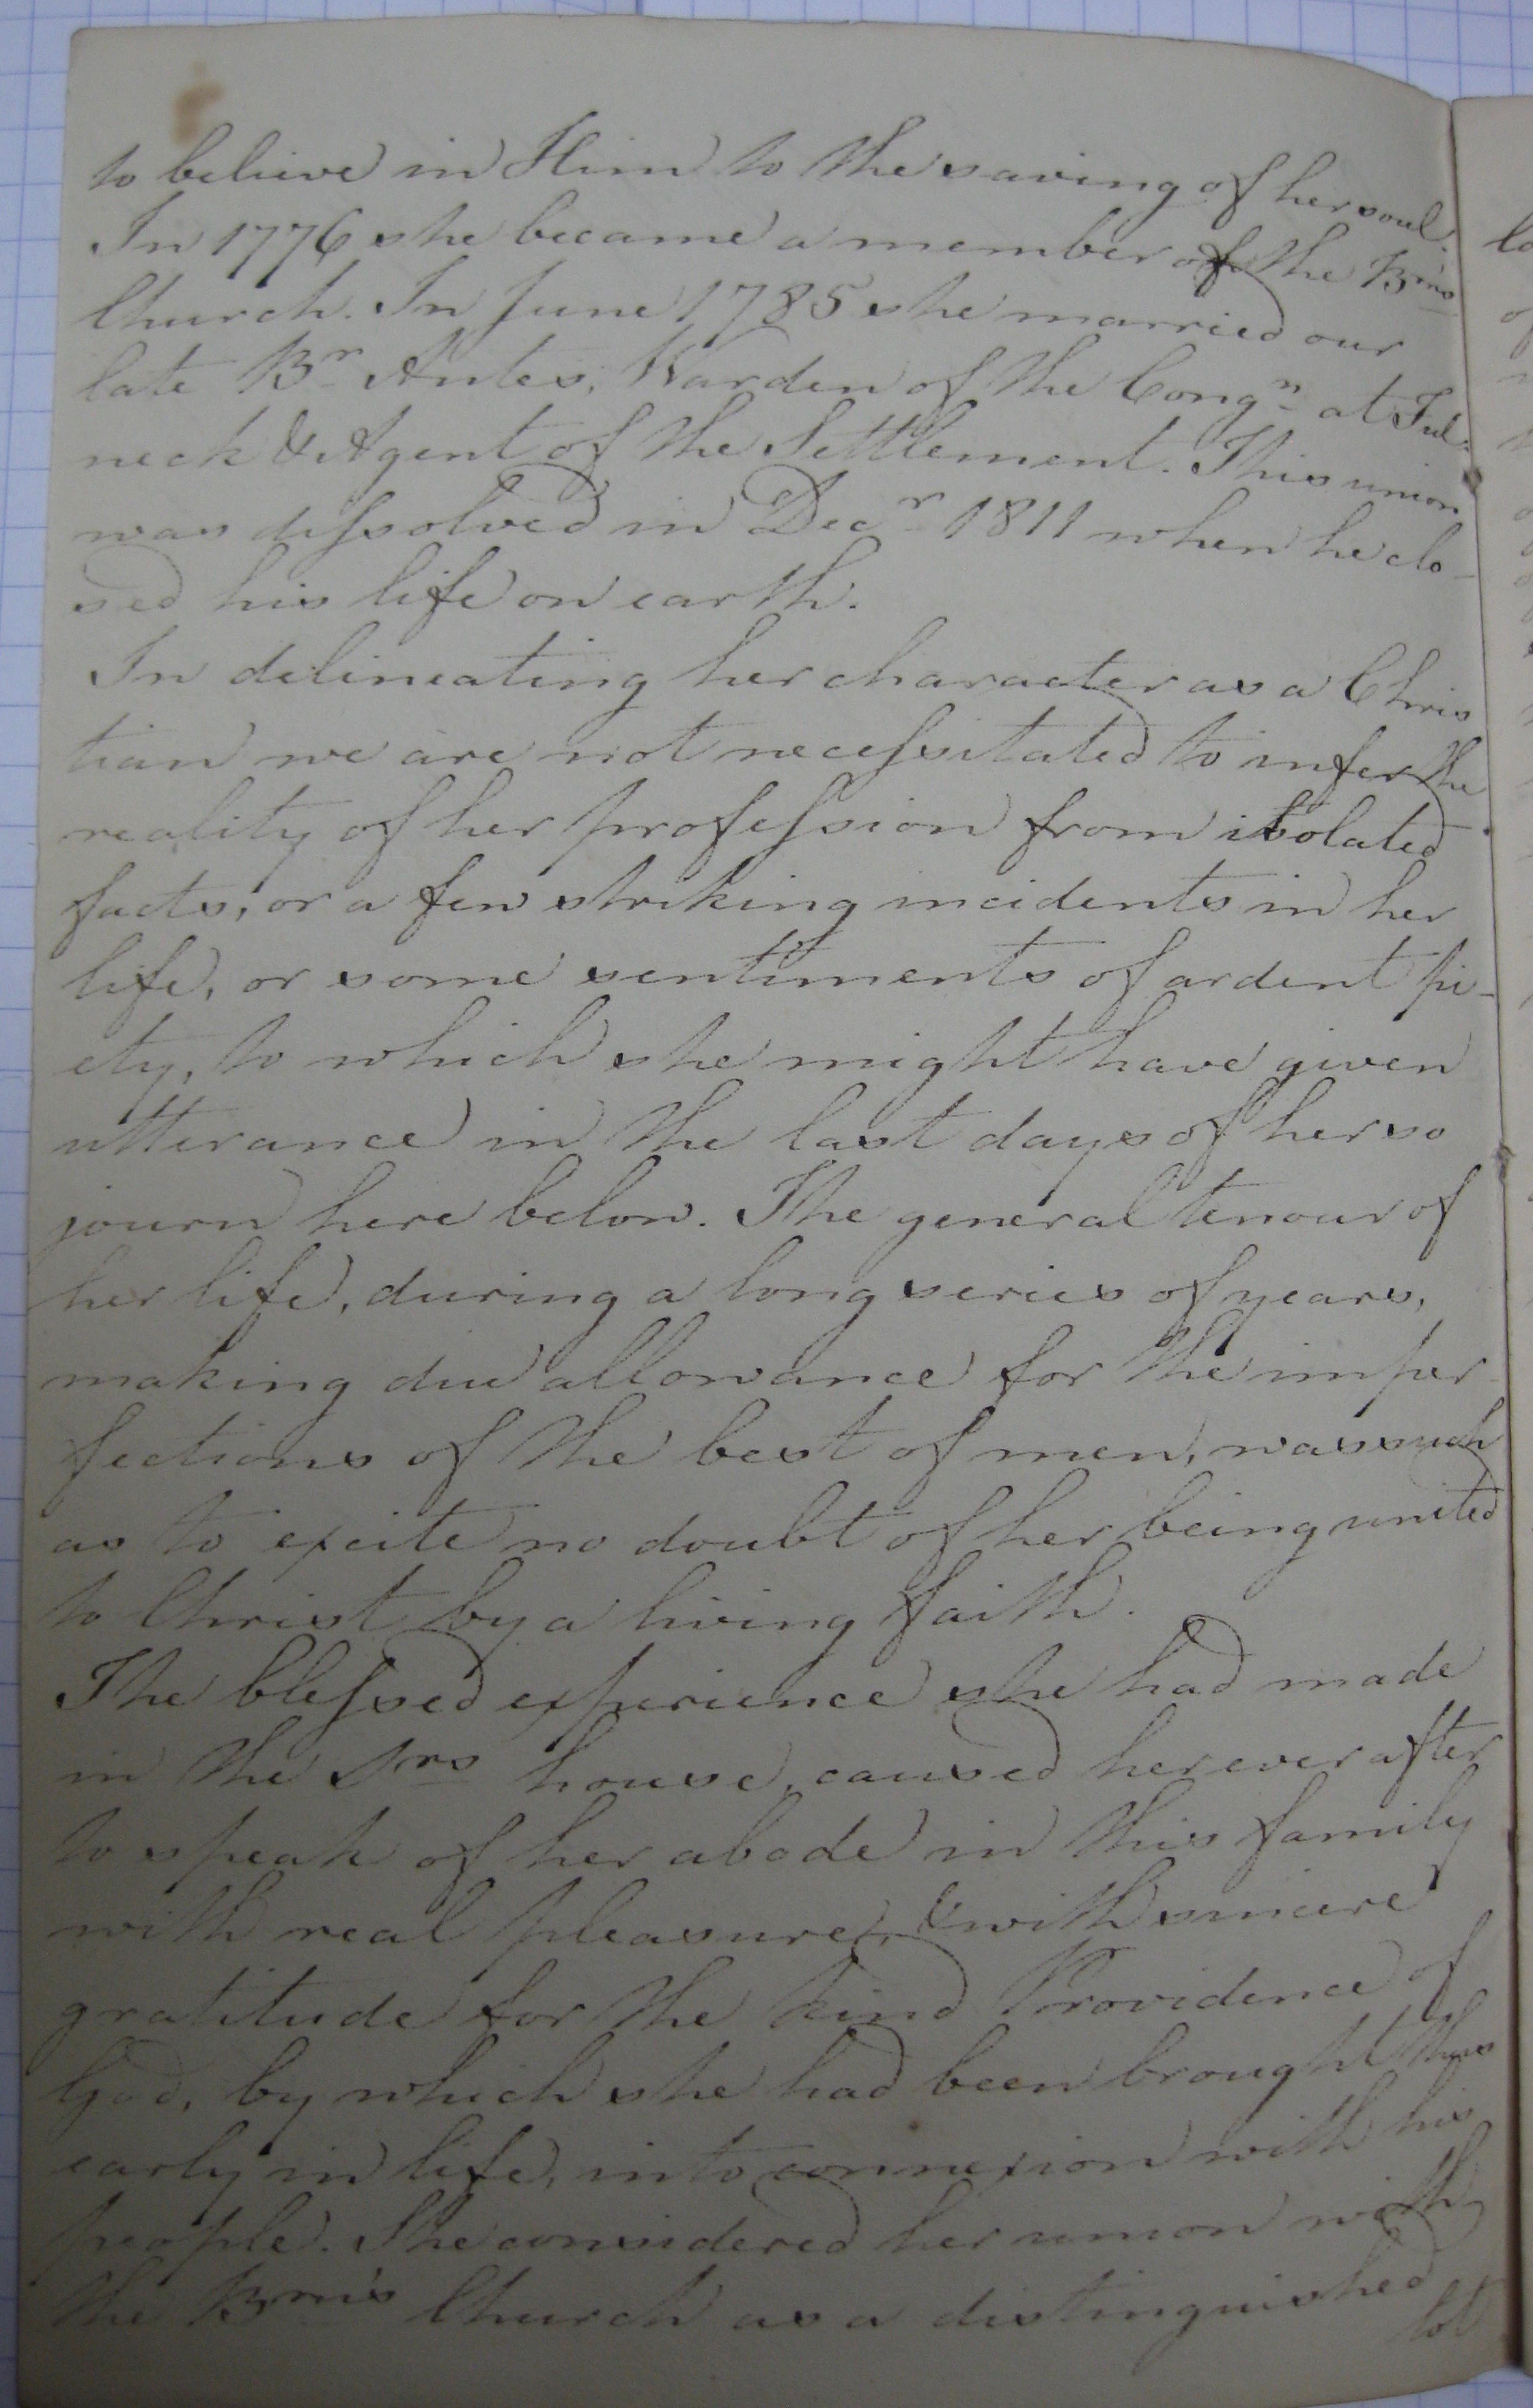 to believe in Him to the saving of her soul.
In 1776 she became a member of the Brns
Church. In June 1785 she married our
late Br Antes, Warden of the Congn at Ful-
neck & Agent of the Settlement. This union
was dissolved in Decr 1811 when he clo-
sed his life on earth.
In delineating her character as a Chris
tian we are not necessitated to infer the
reality of her profession from isolated
facts, or a few striking incidents in her
life, or some sentiments of ardent pi-
ety, to which she might have given
utterance in the last days of her so
journ here below. The general tenour of
her life, during a long series of years,
making due allowance for the imper
fections of the best of men, was such
as to excite no doubt of her being united
to Christ by a living faith.
The blessed experience she had made
in the Srs house, caused her ever after
to speak of her abode in this family
with real pleasure, & with sincere
gratitude for the kind Providence of
God, by which she had been brought thus
early in life, into connexion with his
people. She considered her union with
the Brn's Church as a distinguished
lot
lo